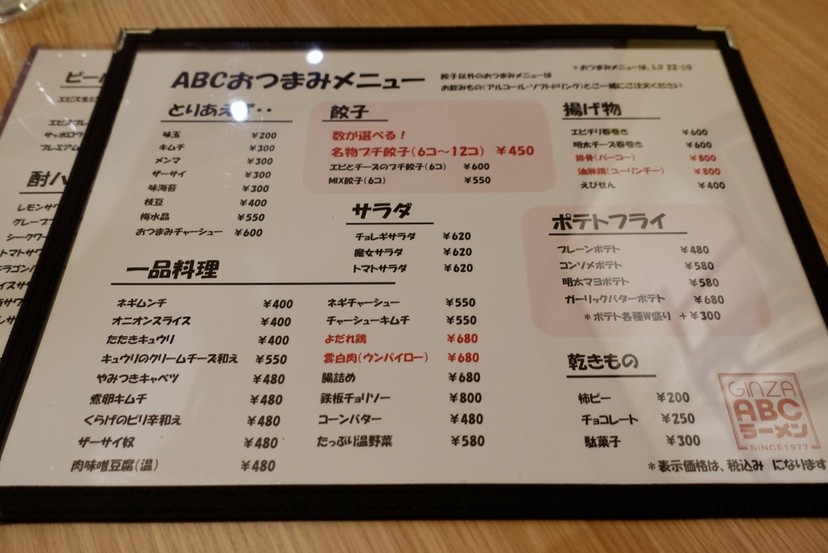 ABCおつまみメニュー
餃子以外のおつまみメニューは
お飲みもの(アルコール・ソフトドリンク)とご一緒にご注文ください
*おつまみメニューは、L.O 22:00
とりあえず・・
味玉 ¥200
キムチ ¥300
メンマ ¥300
ザーサイ ¥300
味海苔 ¥300
枝豆 ¥400
梅水晶 ¥550
おつまみチャーシュー ¥600
餃子
数が選べる!
名物プチ餃子(6コ〜12コ) ¥450
エビとチーズのプチ餃子(6コ) ¥600
MIX餃子(6コ) ¥550
揚げ物
エビチリ春巻き ¥600
明太チーズ春巻き ¥600
排骨(パーコー) ¥800
油淋鶏(ユーリンチー) ¥800
えびせん ¥400
サラダ
チョレギサラダ ¥620
魔女サラダ ¥620
トマトサラダ ¥620
ポテトフライ
プレーンポテト ¥480
コンソメポテト ¥580
明太マヨポテト ¥580
ガーリックバターポテト ¥680
*ポテト各種W盛り +¥300
一品料理
ネギムンチ ¥400
オニオンスライス ¥400
たたきキュウリ ¥400
キュウリのクリームチーズ和え ¥550
やみつきキャベツ ¥480
煮卵キムチ ¥480
くらげのピリ辛和え ¥480
ザーサイ奴 ¥480
肉味噌豆腐(温) ¥480
ネギチャーシュー ¥550
チャーシューキムチ ¥550
よだれ鶏 ¥680
雲白肉(ウンパイロー) ¥680
腸詰め ¥680
鉄板チョリソー ¥800
コーンバター ¥480
たっぷり温野菜 ¥580
乾きもの
柿ピー ¥200
チョコレート ¥250
駄菓子 ¥300
GINZA
ABC
ラーメン
SINCE1977
*表示価格は、税込み になります
ビール
エビス生ビ
エビス
サッポロ
プレミアム
酎ハ
レモンサワ
グレープフ
シークワー
トマトサワ
ドラゴンハ